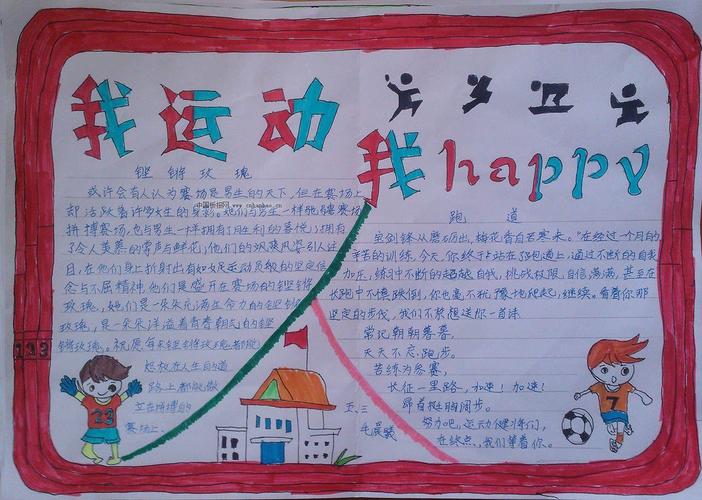 我运动
我happy
铿锵玫瑰
或许会有人认为赛场是男生的天下,但在赛场上
却活跃着许多女生的身影。她们与男生一样驰骋赛场
拼搏赛场,也与男生一样拥有了胜利的喜悦,拥有
了令人羡慕的掌声与鲜花,他们的飒爽风姿引人注
目,在他们身上折射出有如女足运动员般的坚定信
念与不屈精神。他们是盛开在赛场的铿锵
玫瑰,她们是一朵朵充满生命力的铿锵
玫瑰,是一朵朵洋溢着青春朝气的铿
锵玫瑰。祝愿每朵铿锵玫瑰都能
在人生的道
路上都能做
赛场上。
中国板报网 www.cnbanbao.cn
跑道
宝剑锋从磨砺出,梅花香自苦寒来。"在经过一个月的
辛苦的训练,今天,你终于站在了跑道上,通过不断的自我
加压,练习中不断的超越自我,挑战极限,自信满满,甚至在
长跑中不慎跌倒,你也毫不犹豫地爬起,继续。看着你那
坚定的步伐,我们不禁想送你一首诗
常记朝朝暮暮,
天天不忘跑步。
苦练为参赛,
长征一里路,加速!加速!
昂首挺胸阔步。
努力吧,运动健将们,
在终点,我们等着你。
五、三
毛晨
23
7